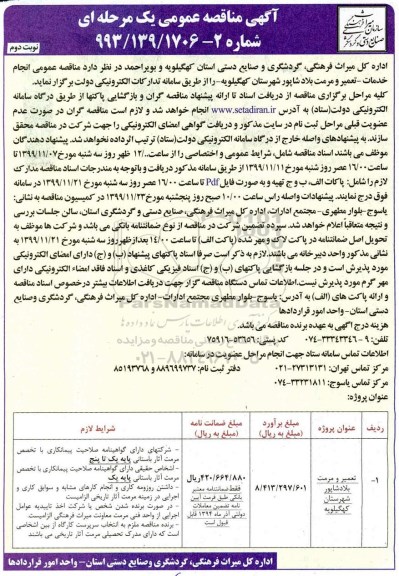 آگهی مناقصه عمومی یک مرحله ای
شماره ۲- ۹۹۳/۱۳۹/۱۷۰۶
نوبت دوم
اداره کل میراث فرهنگی، گردشگری و صنایع دستی استان کهگیلویه و بویراحمد در نظر دارد مناقصه عمومی انجام
خدمات -تعمیر و مرمت بلاد شاپور شهرستان کهگیلویه- را از طریق سامانه تدارکات الکترونیکی دولت برگزار نماید.
کلیه مراحل برگزاری مناقصه از دریافت اسناد تا ارائه پیشنهاد مناقصه گران و بازگشایی پاکتها از طریق درگاه سامانه
الکترونیکی دولت(ستاد) به آدرس www.setadiran.ir انجام خواهد شد و لازم است مناقصه گران در صورت عدم
عضویت قبلی مراحل ثبت نام در سایت مذکور و دریافت گواهی امضای الکترونیکی را جهت شرکت در مناقصه محقق
سازند. به پیشنهادهای واصله خارج از درگاه سامانه الکترونیکی دولت(ستاد) ترتیب اثر داده نخواهد شد. پیشنهاد دهندگان
موظف می باشند اسناد مناقصه شامل، شرایط عمومی و اختصاصی را از ساعت ۱۲/۰۰ ظهر روز سه شنبه مورخ ۱۳۹۹/۱۱/۰۷ تا
ساعت ۱۶/۰۰ عصر روز سه شنبه مورخ ۱۳۹۹/۱۱/۱۱ از طریق سامانه مذکور دریافت و باتوجه به مندرجات اسناد مناقصه مدارک
لازم را شامل: پاکات الف، ب و ج تهیه و به صورت فایل Pdf تا ساعت ۱۶/۰۰ عصر روز سه شنبه مورخ ۱۳۹۹/۱۱/۲۱ در سامانه
فوق درج نمایند. پیشنهادات واصله راس ساعت ۱۰/۰۰ صبح روز پنجشنبه مورخ ۱۳۹۹/۱۱/۲۳ در کمیسیون مناقصه به نشانی:
یاسوج-بلوار مطهری- مجتمع ادارات، اداره کل میراث فرهنگی، صنایع دستی و گردشگری استان، سالن جلسات بررسی
و نتیجه متعاقباً اعلام خواهد شد. سپرده تضمین شرکت در مناقصه از نوع ضمانتنامه بانکی می باشد و شرکت ها موظف به
تحویل اصل ضمانتنامه در پاکت لاک و مهر شده (پاکت الف) تا ساعت ۱۴/۰۰ بعدازظهر روز سه شنبه مورخ ۱۳۹۹/۱۱/۲۱ به
نشانی مذکور واحد دبیرخانه می باشند. لازم به ذکر است صرفا اسناد پاکتهای پیشنهاد (ب) و (ج) دارای امضای الکترونیکی
مورد پذیرش است و در جلسه بازگشایی پاکتهای (ب) و (ج) اسناد فیزیکی کاغذی و اسناد فاقد امضاء الکترونیکی دارای
مهر گرم مورد پذیرش نیست. اطلاعات تماس دستگاه مناقصه گزار جهت دریافت اطلاعات بیشتر درخصوص اسناد مناقصه
و ارائه پاکت های (الف) به آدرس: یاسوج-بلوار مطهری مجتمع ادارات- اداره کل میراث فرهنگی، گردشگری وصنایع
دستی استان-واحد امور قراردادها
هزینه درج آگهی به عهده برنده مناقصه می باشد.
تلفن: ۹ - ۳۳۳۴۳۳۴۶-۰۷۴ کد پستی: ۵۳۶۵۶-۷۵۹۱۶
اطلاعات تماس سامانه ستاد جهت انجام مراحل عضویت در سامانه:
مرکز تماس تهران: ۲۷۳۱۳۱۳۱-۰۲۱ دفتر ثبت نام: ۸۸۹۶۹۷۳۷ و ۸۵۱۹۳۷۶۸
مرکز تماس یاسوج: ۳۳۲۳۱۸۱۱-۰۷۴
عنوان پروژه:
ردیف عنوان پروژه مبلغ برآورد (مبلغ به ریال) مبلغ ضمانت نامه (مبلغ به ریال) شرایط لازم
۱- تعمیر و مرمت بلادشاپور شهرستان کهگیلویه
۸/۴۱۳/۲۹۷/۶۰۱
۴۲۰/۶۶۴/۸۸۰ ریال
فقط ضمانتنامه معتبر
بانکی طبق فرمت آیین
نامه تضمین معاملات
دولتی آذر ماه ۱۳۹۴ قابل
قبول است
- شرکتهای دارای گواهینامه صلاحیت پیمانکاری با تخصص
مرمت آثار باستانی پایه یک تا پنج
- اشخاص حقیقی دارای گواهینامه صلاحیت پیمانکاری با تخصص
مرمت آثار باستانی پایه یک
- داشتن رزومه کاری و انجام کارهای مشابه و سوابق کاری و
اجرایی در زمینه مرمت آثار تاریخی الزامیست
- در صورت برنده شدن شخص یا شرکت اخذ تاییدیه عوامل
اجرایی از واحد فنی مرمت معاونت میراث فرهنگی الزامیست.
- برنده مناقصه ملزم به انتخاب سرپرست کارگاه از بین اشخاصی
است که دارای مدرک تحصیلی مرمت آثار تاریخی می باشند
اداره کل میراث فرهنگی، گردشگری وصنایع دستی استان - واحد امور قراردادها